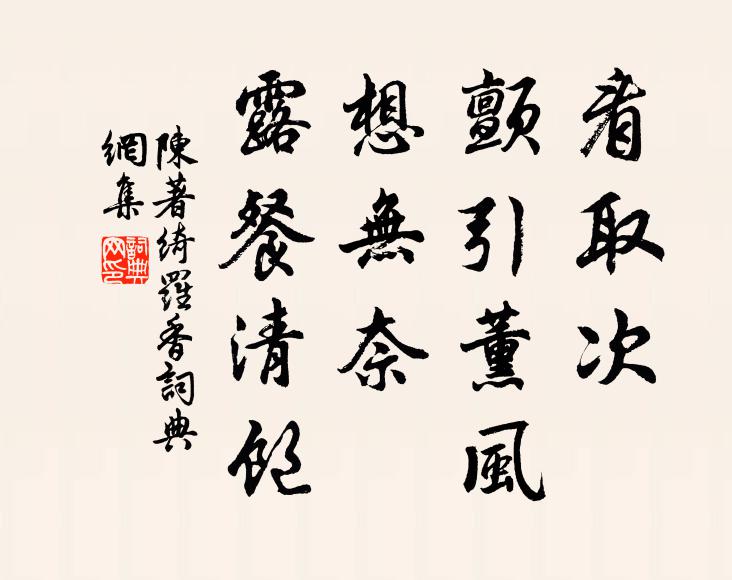 看取次
顫引薰風
想無奈
露餐清飽
陳著綺羅香詞典
網集
詞典网印